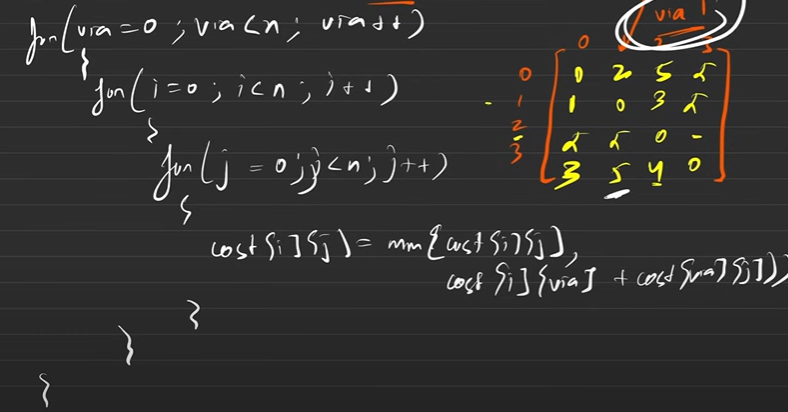 for(via=0 ; via<n; via++)
{
for(i=0 ; i<n ; i++)
{
for(j = 0; j<n; j++)
{
cost[i][j] = min(cost[i][j],
cost[i][via] + cost[via][j]))
}
}
}
via 1
0 3
0 0 2 5 2
1 1 0 3 2
2 2 2 0 -
3 3 5 4 0